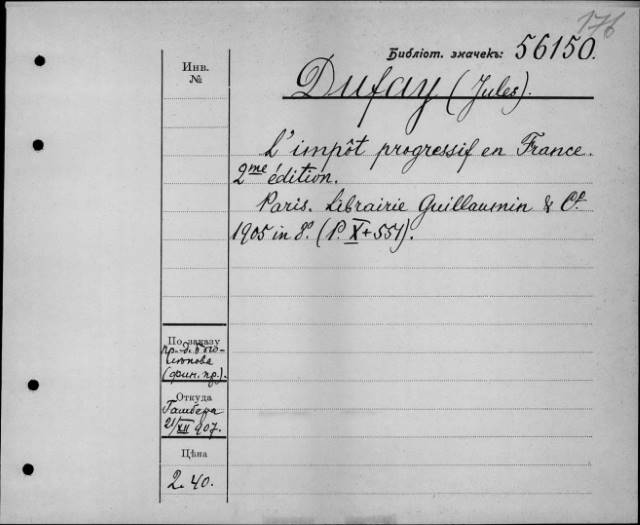 176
Библіот. значекъ: 56150.
Инв.
№
Dufay (Jules).
L'impôt progressif en France.
2me édition.
Paris. Librairie Guillaumin & Ce.
1905 in 8º. (P. X + 551).
По заказу
(фин. пр.).
Откуда
21/XII 907.
Цѣна
2. 40.